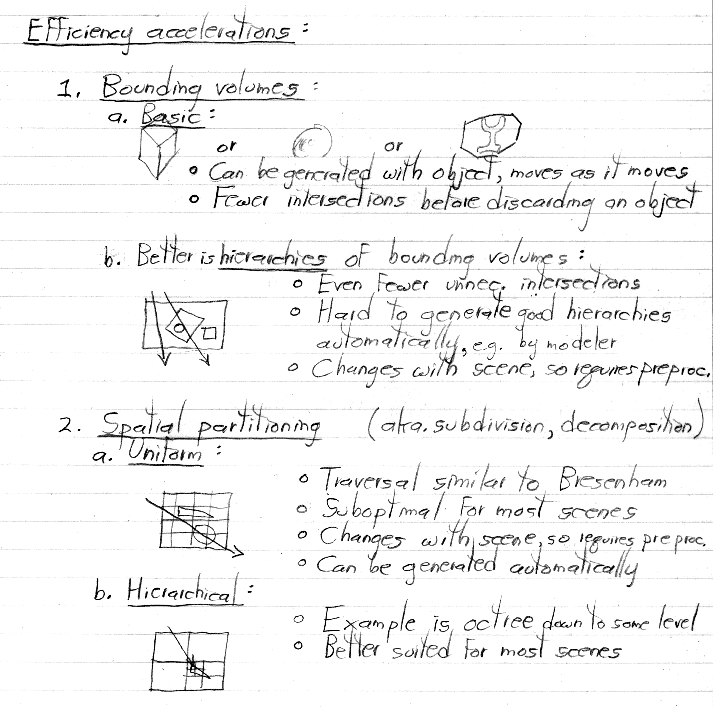 Efficiency accelerations :
1. Bounding volumes :
a. Basic :
or or
o Can be generated with object, moves as it moves
o Fewer intersections before discarding an object
b. Better is hierarchies of bounding volumes :
o Even fewer unnec. intersections
o Hard to generate good hierarchies
automatically, e.g. by modeler
o Changes with scene, so requires preproc.
2. Spatial partitioning (aka. subdivision, decomposition)
a. Uniform :
o Traversal similar to Bresenham
o Suboptmal for most scenes
o Changes with scene, so requires preproc.
o Can be generated automatically
b. Hierarchical :
o Example is octree down to some level
o Better suited for most scenes